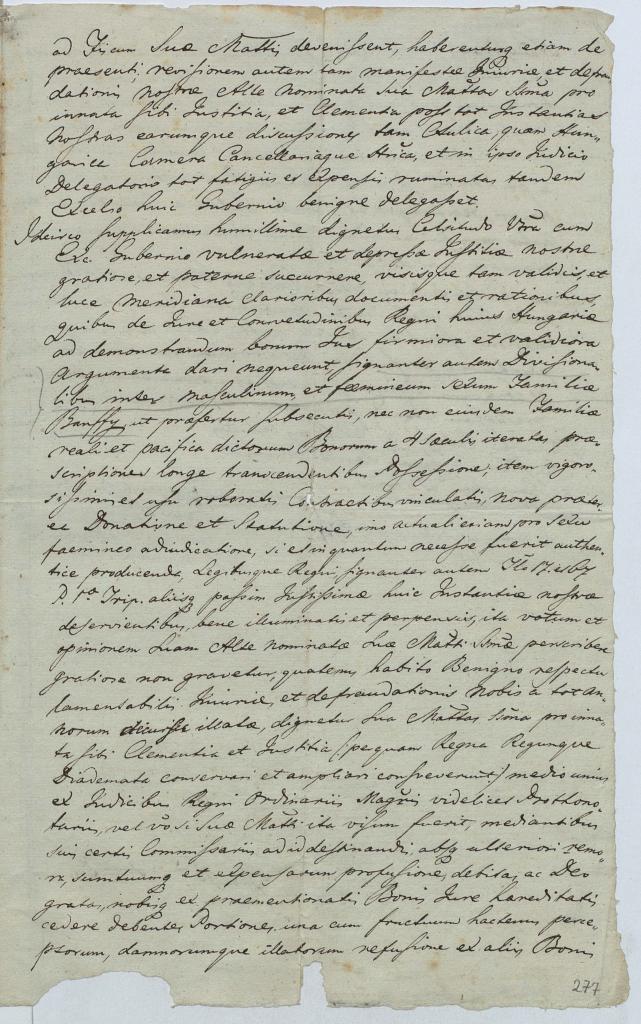 ad Fiscum Suæ Mattis devenissent, haberenturq etiam de
praesenti, revisionem autem tam manifestæ Injuriæ, et defrau
dationis nostræ Alte nominata Sua Mattas Ssma pro
innata sibi Justitia, et Clementia post tot Instantias
nostras earumque discussiones tam Aulica, quam Hun-
garica Camera Cancellariaque Aulica, et in ipso Judicio
Delegatorio tot fatigiis et expensis ruminatas tandem
Excelso huic Gubernio benigne delegasset.
Idcirco supplicamus humillime dignetur Celsitudo Vra cum
Exc. Gubernio vulneratæ et depressæ Justitiæ nostræ
gratiose, et paterne succurrere, visisque tam validis, et
luce meridiana clarioribus documentis et rationibus,
quibus de Jure et Consvetudinibus Regni huius Hungariæ
ad demonstrandum bonum Jus firmiora et validiora
Argumenta dari nequeunt, signanter autem Divisiona-
libus inter masculinum et foemineum sexum Familiæ
Banffy, ut præfertur subsecutis, nec non eiusdem Familiæ
reali et pacifica dictorum Bonorum a 4 Sæculis iteratas præ-
scriptiones longe transcendentibus Possessione, item vigoro-
sissimis et usu roboratis Contractibus vinculatis, nova præte-
ea Donatione et Statutione, imo actuali etiam pro sexu
faemineo adiudicatione, si et in quantum necesse fuerit authen-
tice producenda, Legibusque Regni, signanter autem Tlo 17. et 67
P. 1a Trip. aliisq passim Justissimæ huic Instantiæ nostræ
deservientibus, bene illuminatis et perpensis, ita votum et
opinionem Suam Alte nominatæ Suæ Matti Ssmæ perscribere
gratiose non gravetur, quatenus habito Benigno respectu
lamentabilis Injuriæ, et defraudationis nobis a tot an-
norum decursu illatæ, dignetur Sua Mattas Ssma pro inna-
ta sibi Clementia et Justitia (: per quam Regna Regumque
Diademata conservari et ampliari consveverunt :) medio unius
ex Judicibus Regni Ordinariis Magris videlicet Prothono-
tariis, vel vo si Suæ Matti ita visum fuerit, mediantibus
suis certis Commissariis ad id destinandis, absq ulteriori remo-
ra, sumtuumq et expensarum profusione, debitas, ac Deo
gratas, nobisq ex praementionatis Bonis Jure hæreditatis
cedere debentes Portiones, una cum fructuum hactenus perce-
ptorum, damnorumque illatorum refusione ex aliis Bonis
277